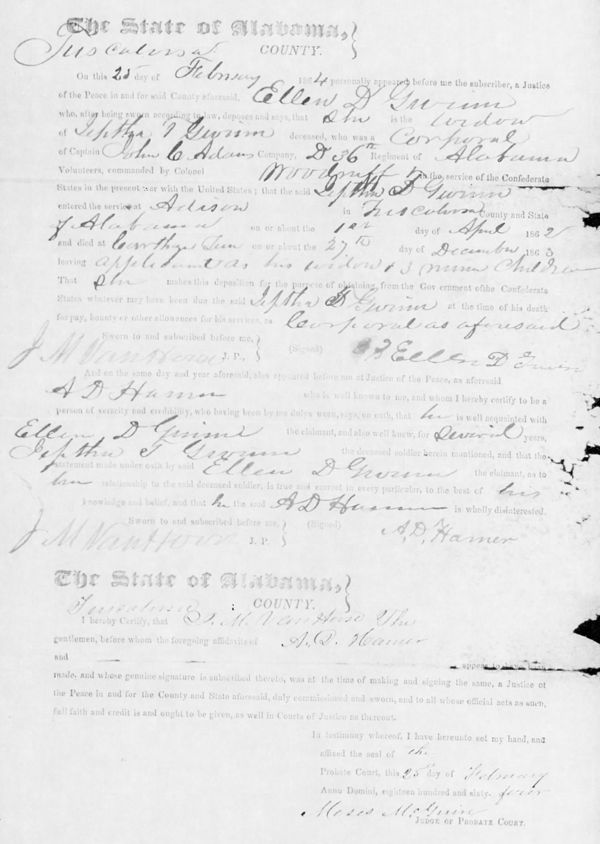 The State of Alabama,
Tuscaloosa COUNTY.
On this 25 day of February 1864 personally appeared before me the subscriber, a Justice
of the Peace in and for said County aforesaid, Ellen D Gwinn
who, after being sworn according to law, deposes and says, that She is the widow
of Jeptha T Gwinn deceased, who was a Corporal
of Captain John C Adams Company, D 36th Regiment of Alabama
Volunteers, commanded by Colonel Woodruff in the service of the Confederate
States in the present war with the United States; that the said Jeptha T Gwinn
entered the service at Adison in Tuscaloosa County and State
of Alabama on or about the 1st day of April 1862
and died at on or about the 27th day of December 1863
leaving applicant as his widow & 3 minor Children
That She makes this deposition for the purpose of obtaining, from the Government of the Confederate
States whatever may have been due the said Jeptha T Gwinn at the time of his death
for pay, bounty or other allowances for his services, as Corporal as aforesaid
Sworn to and subscribed before me,
J M VanHoose J. P. (Signed) Ellen D Gwinn
And on the same day and year aforesaid, also appeared before me at Justice of the Peace, as aforesaid
A D Hamer who is well known to me, and whom I hereby certify to be a
person of veracity and credibility, who having been by me duly sworn, says, on oath, that he is well acquainted with
Ellen D Gwinn the claimant, and also well knew, for several years,
Jeptha T Gwinn the deceased soldier herein mentioned, and that the
statement made under oath by said Ellen D Gwinn the claimant, as to
her relationship to the said deceased soldier, is true and correct in every particular, to the best of his
knowledge and belief, and that he the said A D Hamer is wholly disinterested.
Sworn to and subscribed before me, (Signed) A. D. Hamer
J M VanHoose J. P.
The State of Alabama,
Tuscaloosa COUNTY.
I hereby Certify, that J. M. VanHoose The
gentlemen, before whom the foregoing affidavits of A. D. Hamer
and appear to
made, and whose genuine signature is subscribed thereto, was at the time of making and signing the same, a Justice of
the Peace in and for the County and State aforesaid, duly commissioned and sworn, and to all whose official acts as such,
full faith and credit is and ought to be given, as well in Courts of Justice as thereout.
In testimony whereof, I have hereunto set my hand, and
affixed the seal of the
Probate Court, this 25th day of February
Anno Domini, eighteen hundred and sixty-four
Moses McGuire
JUDGE OF PROBATE COURT.